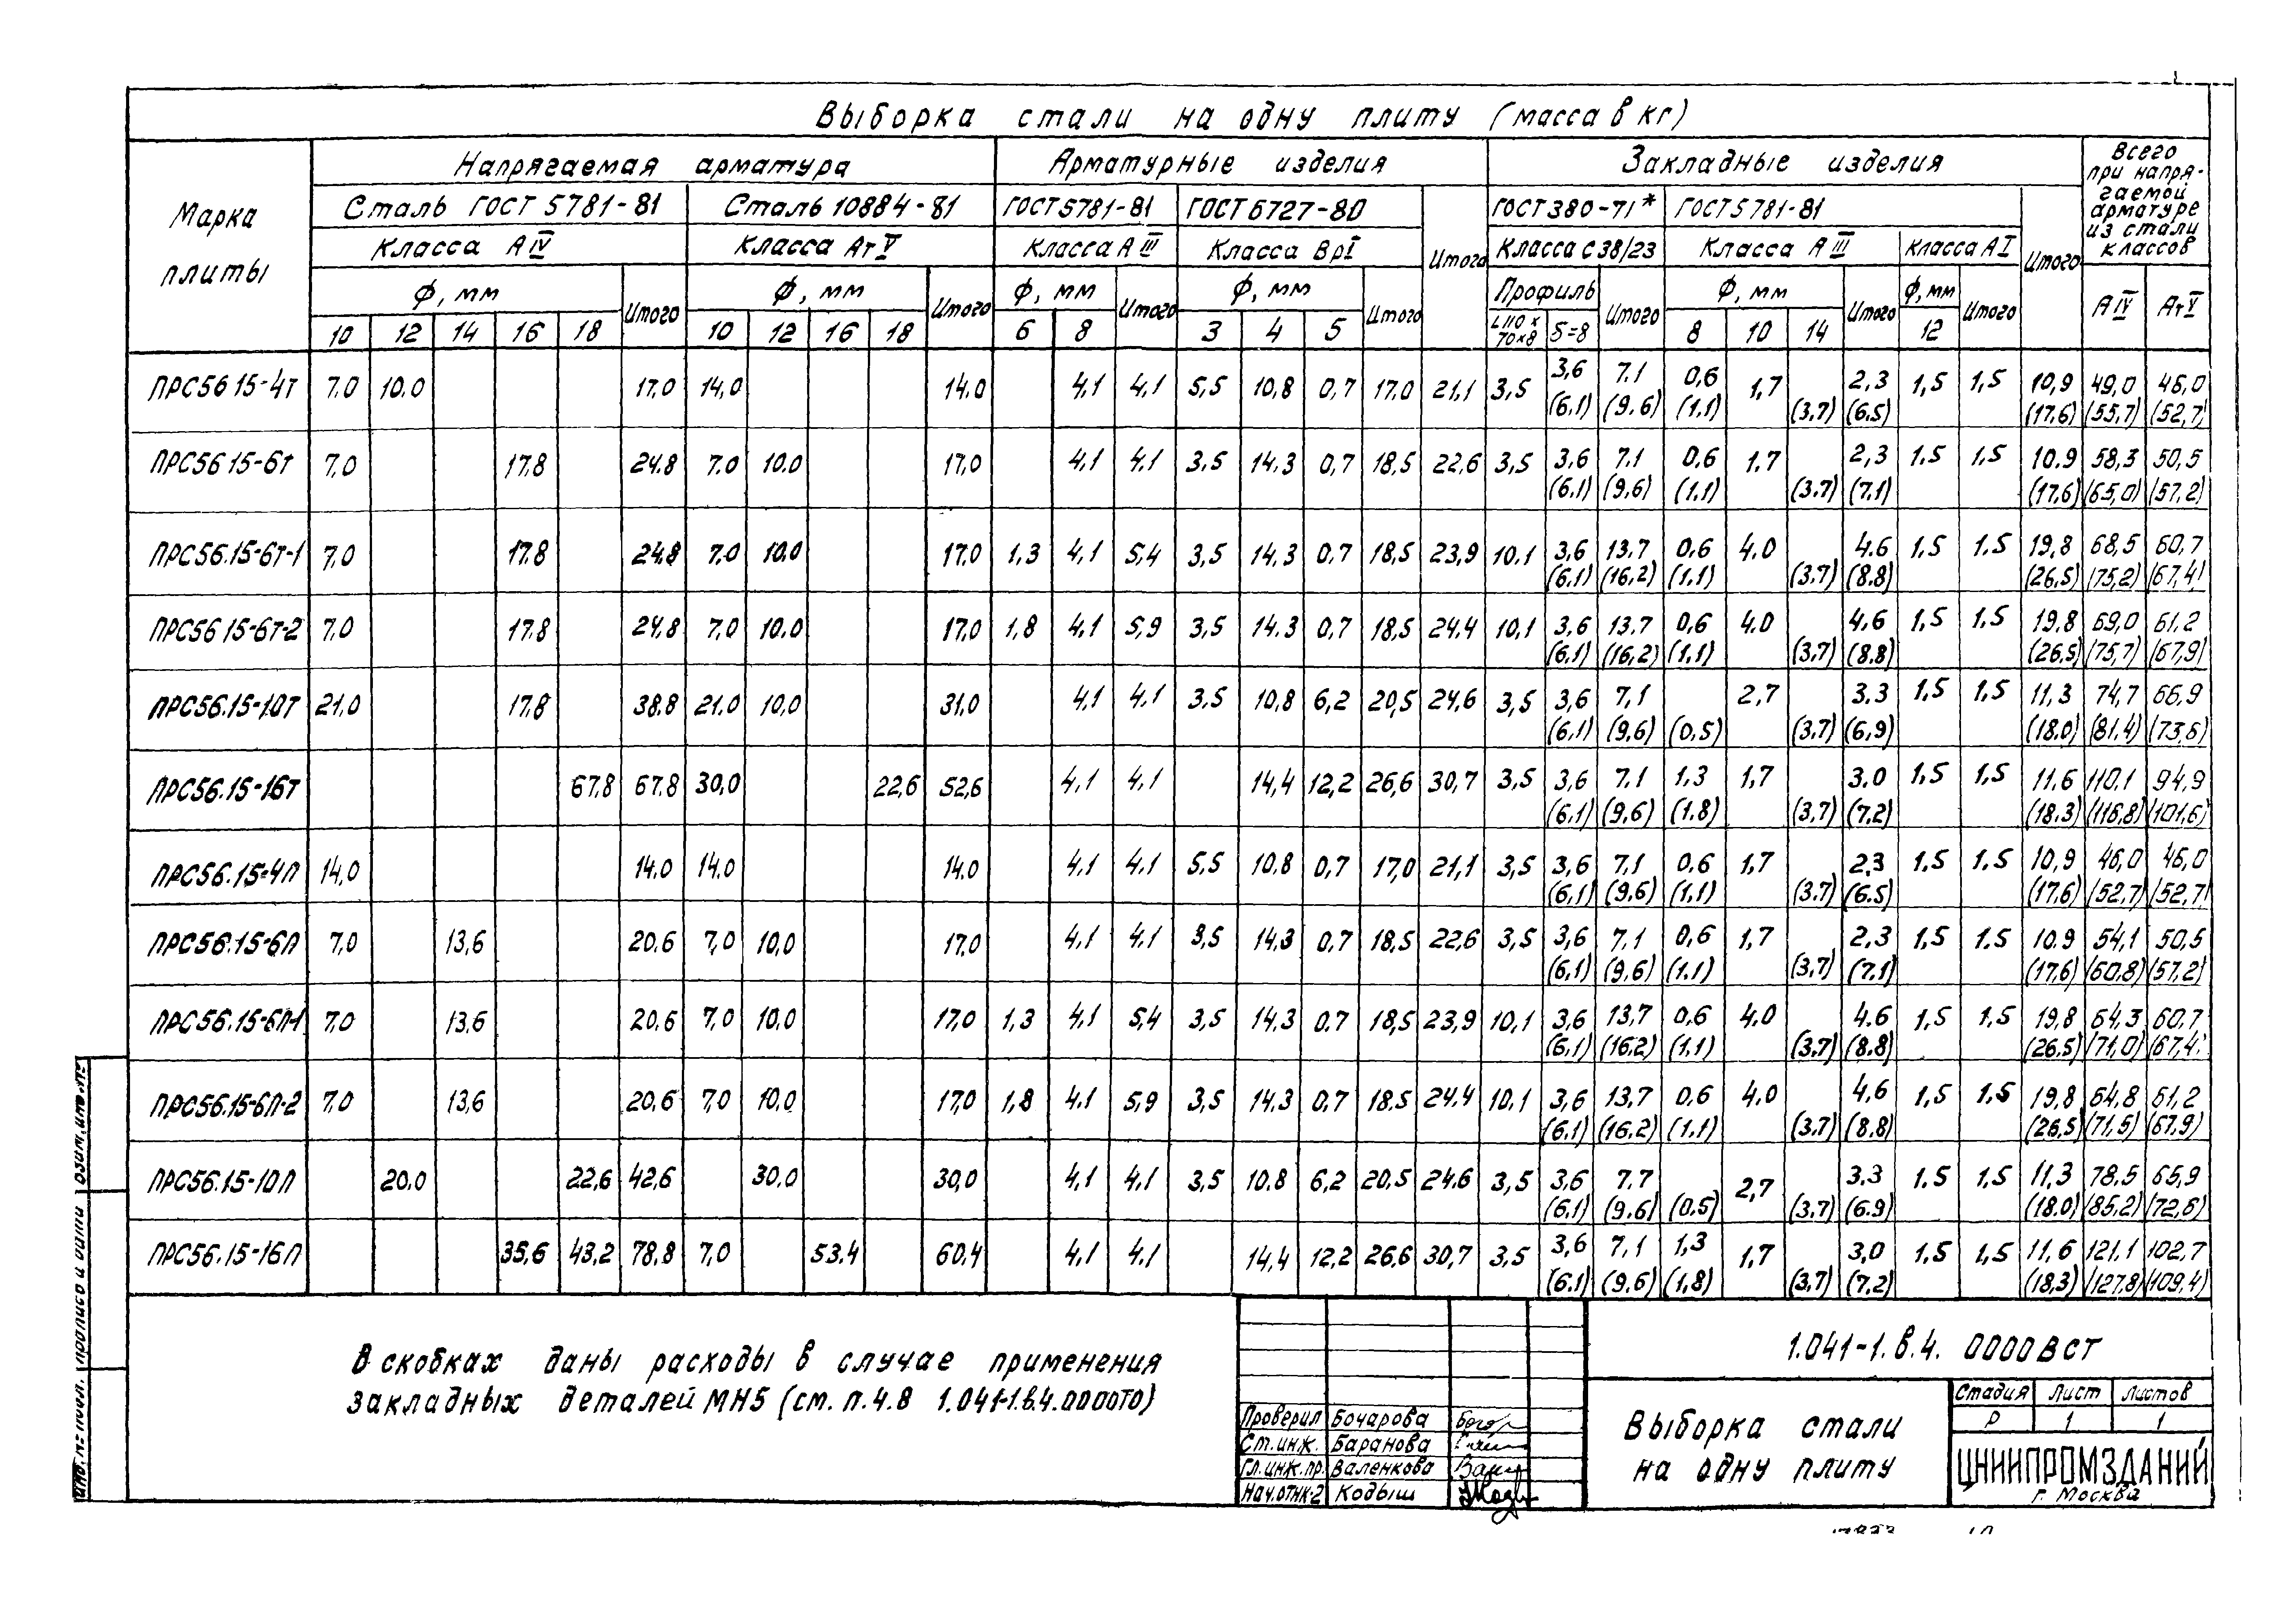 Выборка стали на одну плиту (масса в кг)
Марка плиты
Напрягаемая арматура
Арматурные изделия
Закладные изделия
Всего при напрягаемой арматуре из стали классов
Сталь ГОСТ 5781-81
Сталь 10884-81
ГОСТ 5781-81
ГОСТ 6727-80
Итого
ГОСТ 380-71*
ГОСТ 5781-81
Итого
Класса А IV
Класса Ат V
Класса А III
Класса Вр I
Класса С 38/23
Класса А III
Класса А I
Ф, мм
Итого
Ф, мм
Итого
Ф, мм
Итого
Ф, мм
Итого
Профиль
Итого
Ф, мм
Итого
Ф, мм
Итого
А IV
Ат V
10 12 14 16 18 10 12 16 18 6 8 3 4 5 L110х70х8 S=8 8 10 14 12
ПРС56 15-4т 7.0 10.0 17,0 14,0 14.0 4.1 4.1 5,5 10,8 0,7 17.0 21,1 3,5 3,6 7.1 0,6 1,7 2,3 1,5 1,5 10,9 49,0 46,0
(6.1) (9.6) (1.1) (3.7) (6.5) (17.6) (55,7) (52,7)
ПРС56 15-6т 7,0 17,8 24,8 7.0 10.0 17,0 4.1 4.1 3,5 14.3 0,7 18,5 22,6 3,5 3,6 7.1 0,6 1.7 2,3 1.5 1.5 10.9 58,3 50,5
(6.1) (9,6) (1.1) (3.7) (7.1) (17,6) (65,0) (57,2)
ПРС56.15-6т-1 7,0 17.8 24,8 7,0 10.0 17.0 1,3 4,1 5,4 3,5 14.3 0.7 18,5 23,9 10,1 3,6 13.7 0,6 4.0 4.6 1,5 1.5 19,8 68,5 60,7
(6,1) (16,2) (1.1) (3.7) (8.8) (26,5) (75,2) (67,4)
ПРС56 15-6т-2 7,0 17.8 24,8 7,0 10,0 17,0 1,8 4.1 5,9 3,5 14.3 0,7 18,5 24.4 10,1 3,6 13.7 0,6 4.0 4,6 1,5 1.5 19.8 69,0 61.2
(6.1) (16,2) (1.1) (3.7) (8.8) (26,5) (75,7) (67,9)
ПРС56.15-10т 21,0 17,8 38.8 21.0 10,0 31,0 4,1 4.1 3,5 10,8 6,2 20,5 24,6 3,5 3,6 7,1 2,7 3.3 1,5 1,5 11,3 74,7 66,9
(6.1) (9,6) (0,5) (3.7) (6,9) (18.0) (81.4) (73,6)
ПРС56.15-16т 67,8 67.8 30,0 22,6 52,6 4,1 4,1 14,4 12,2 26,6 30,7 3,5 3,6 7.1 1.3 1,7 3.0 1,5 1,5 11,6 110,1 94,9
(6,1) (9,6) (1.8) (3,7) (7,2) (18.3) (116,8) (101,6)
ПРС56.15-4п 14,0 14.0 14.0 14.0 4.1 4.1 5,5 10,8 0,7 17,0 21,1 3,5 3,6 7,1 0,6 1,7 2,3 1.5 1.5 10,9 46,0 46,0
(6,1) (9,6) (1.1) (3.7) (6.5) (17,6) (52,7) (52,7)
ПРС56.15-6п 7,0 13,6 20.6 7,0 10,0 17.0 4.1 4.1 3,5 14,3 0.7 18,5 22,6 3,5 3,6 7.1 0,6 1,7 2,3 1,5 1.5 10.9 54,1 50,5
(6,1) (9,6) (1.1) (3,7) (7.1) (17,6) (60,8) (57,2)
ПРС56.15-6п-1 7.0 13,6 20,6 7,0 10,0 17,0 1,3 4,1 5,4 3,5 14.3 0.7 18,5 23,9 10,1 3,6 13,7 0,6 4.0 4.6 1,5 1.5 19,8 64,3 60,7
(6,1) (16.2) (1.1) (3.7) (8.8) (26.5) (71,0) (67,4)
ПРС56.15-6п-2 7,0 13,6 20,6 7,0 10.0 17,0 1,8 4.1 5,9 3,5 14.3 0,7 18,5 24.4 10,1 3,6 13.7 0,6 4.0 4.6 1,5 1.5 19,8 64,8 61,2
(6.1) (16.2) (1.1) (3.7) (8.8) (26,5) (71,5) (67.9)
ПРС56.15-10п 20.0 22,6 42,6 30.0 30,0 4,1 4.1 3,5 10.8 6,2 20,5 24.6 3,5 3,6 7.7 2,7 3.3 1.5 1,5 11,3 78,5 65,9
(6.1) (9.6) (0.5) (3.7) (6.9) (18.0) (85,2) (72,6)
ПРС56.15-16п 35,6 43,2 78,8 7,0 53.4 60,4 4,1 4.1 14,4 12,2 26,6 30,7 3,5 3,6 7,1 1,3 1,7 3,0 1,5 1,5 11,6 121.1 102,7
(6.1) (9,6) (1,8) (3,7) (7,2) (18,3) (127,8) (109,4)
В скобках даны расходы в случае применения
закладных деталей МН5 (см. п. 4.8 1.041-1.в.4.0000ТО)
1.041-1.в.4. 0000ВСТ
Проверил Бочарова
Ст.инж. Баранова
Гл.инж.пр. Валенкова
Нач.отнк-2 Кодыш
Выборка стали
на одну плиту
Стадия Лист Листов
Р 1 1
ЦНИИПРОМЗДАНИЙ
г. Москва